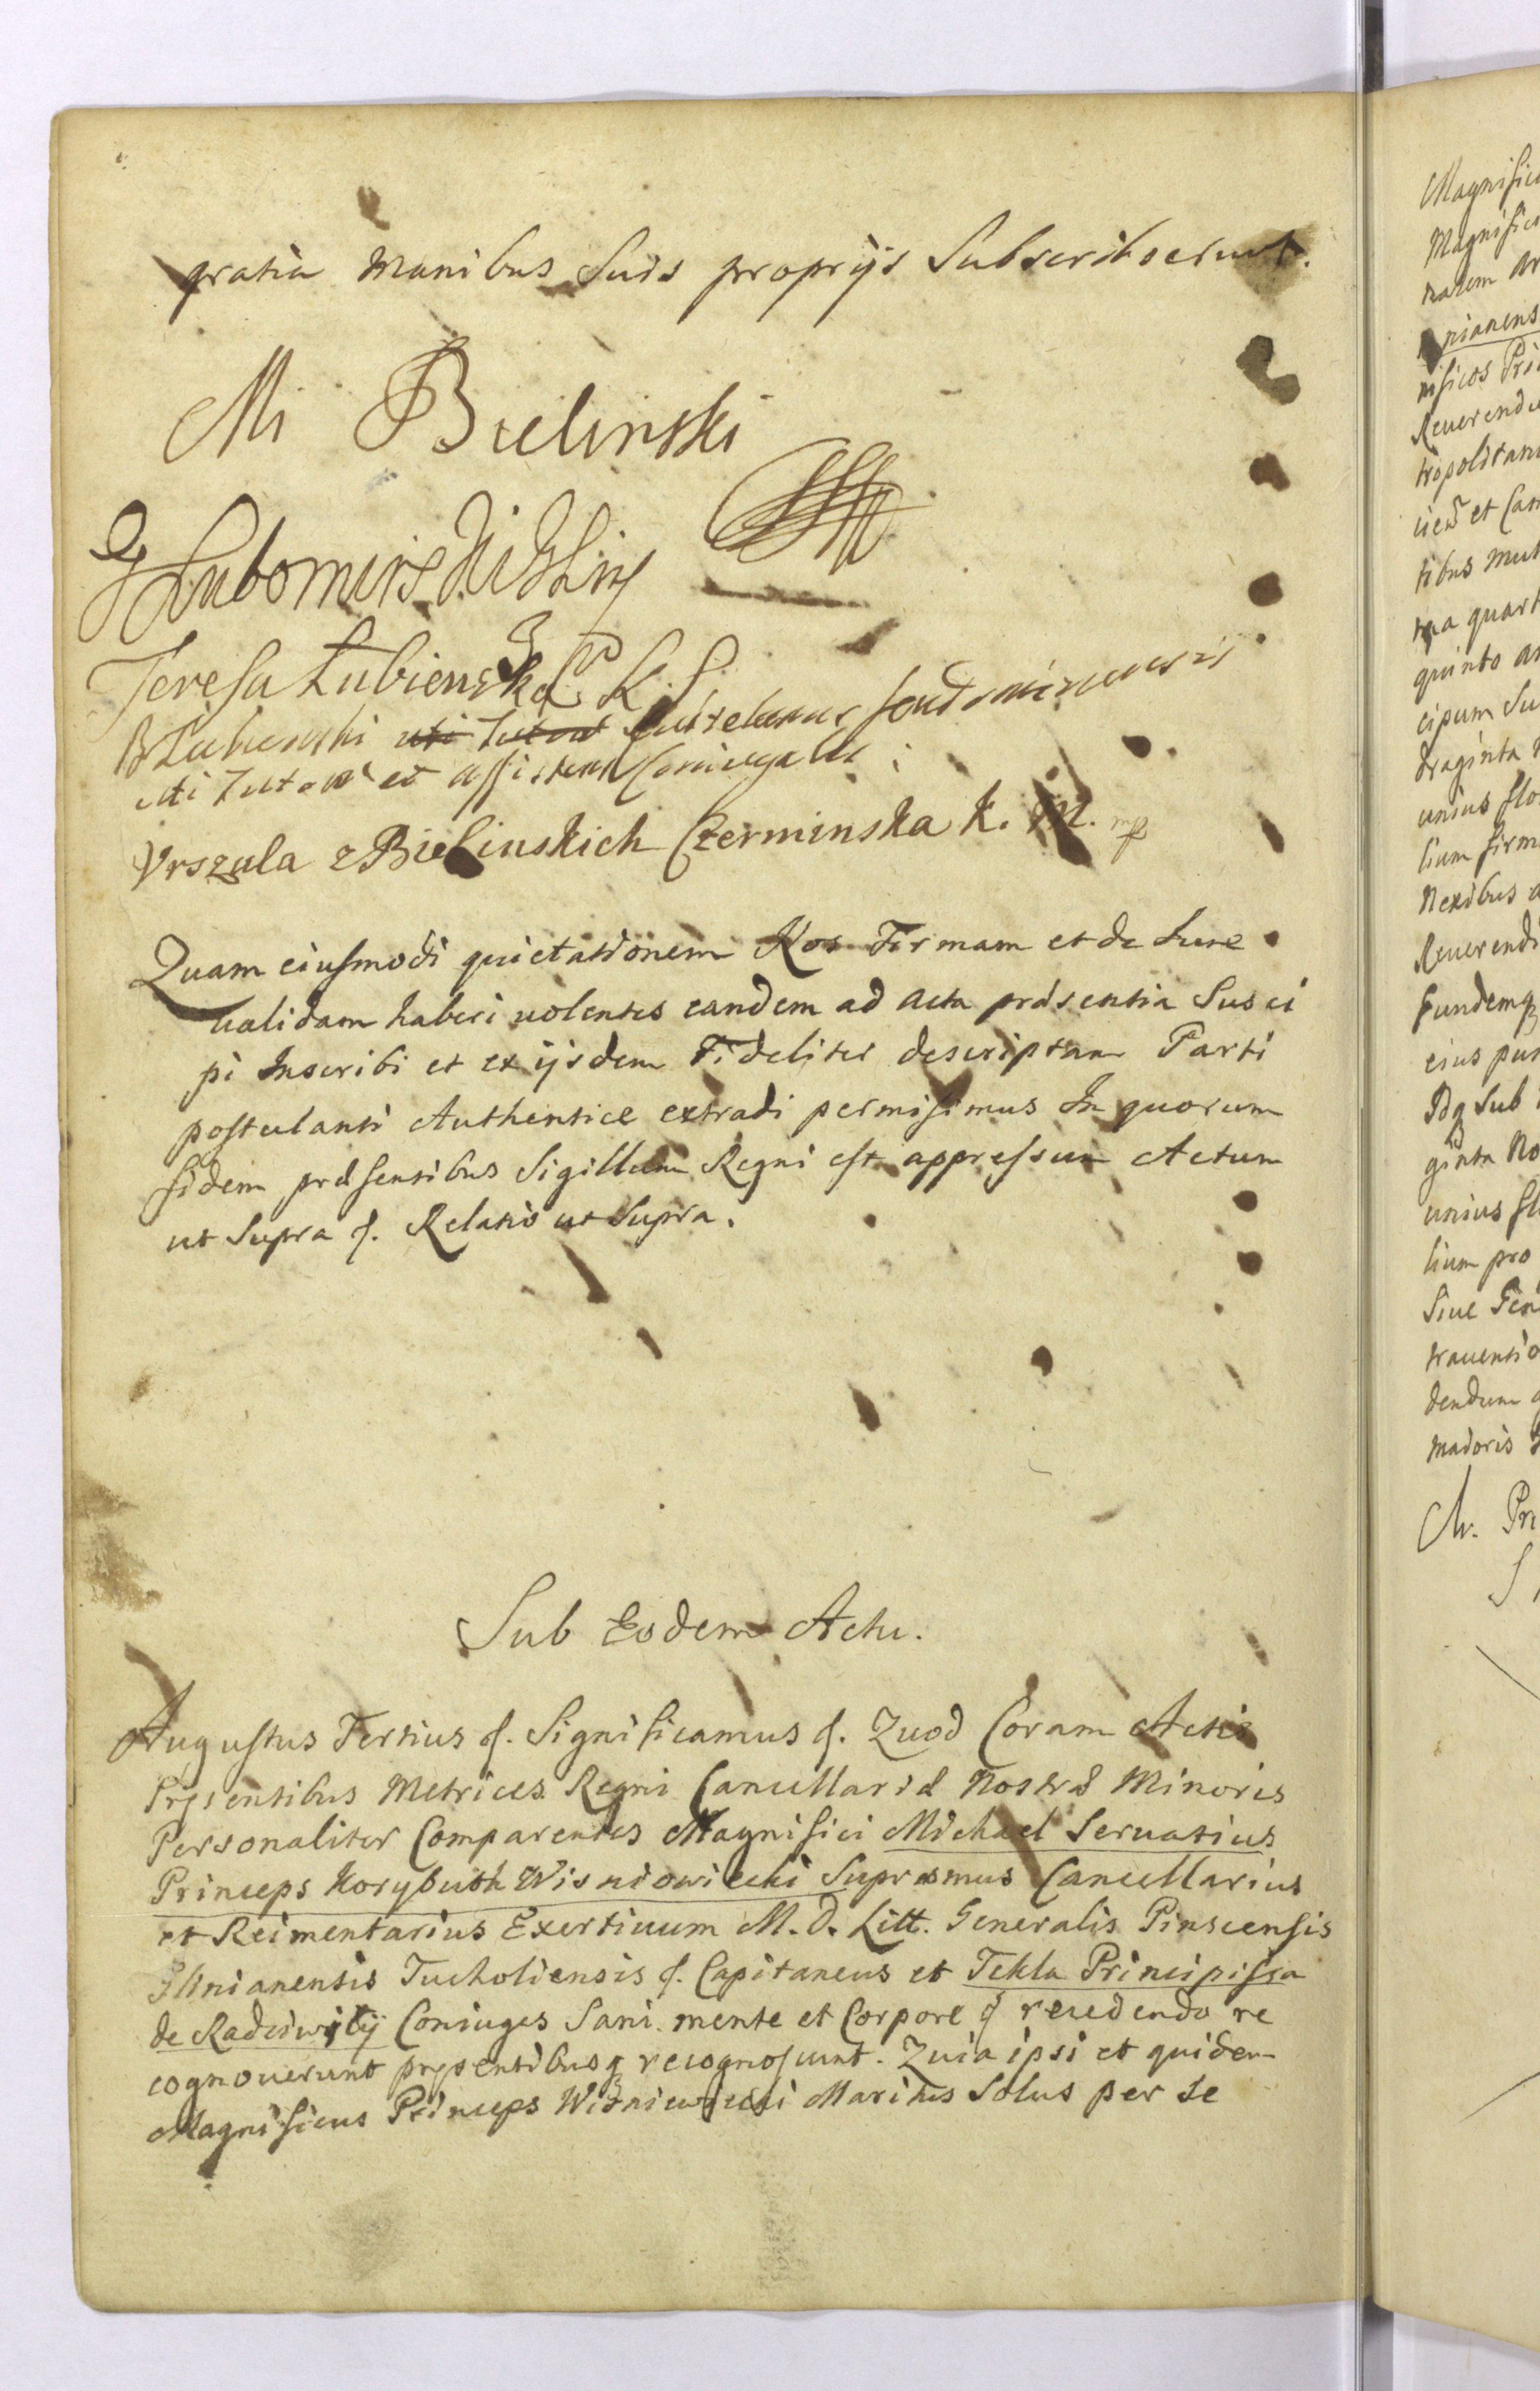 gratia manibus Suis proprijs Subscribserunt.
Mi Bielinski
Lubomirski
Teresa Łubienska
B Łubienski uti Tutor Sendomirensis
uti Tutor et assistens Coniugalis
Vrszula z Bielinskich Czerminska K. M. mp
Quam eiusmodi quietationem Nos Firmam et de Iure
ualidam haberi uolentes eandem ad Acta præsentia Susci
pi Inscribi et ex ijsdem Fideliter descriptam Parti
postulanti Authentice extradi permisimus In quorum
fidem præsentibus Sigillum Regni est appressum Actum
ut Supra &. Relatio ut Supra.
Sub Eodem Actu.
Augustus Tertius &. Significamus &. Quod Coram Actis
Pręsentibus Metrices Regni Cancellariæ Nostræ Minoris
Personaliter Comparentes Magnifici Michael Seruatius
Princeps Korybuth Wisniowiecki Supremus Cancellarius
et Reimentarius Exertiuum M. D. Litt. Generalis Pinscensis
Glinianensis Tucholiensis &. Capitaneus et Tekla Principissa
de Radziwiły Coniuges Sani mente et Corpore & recedendo re
cognouerunt pręsentibusq recognoscunt. Quia ipsi et quidem
Magnificus Princeps Wiśniewiecki Maritus Solus per se
Magnific
Magnific
pianens
nificos Pri
Reuerendi
tropolitan
et Can
tibus mut
quart
quinto
cipum Su
draginta
unius flo
lium firm
Nexibus
Reuerendi
Eundemq
eius
Sub
ginta No
unius fl
lium pro
Siue
trauentio
dendum